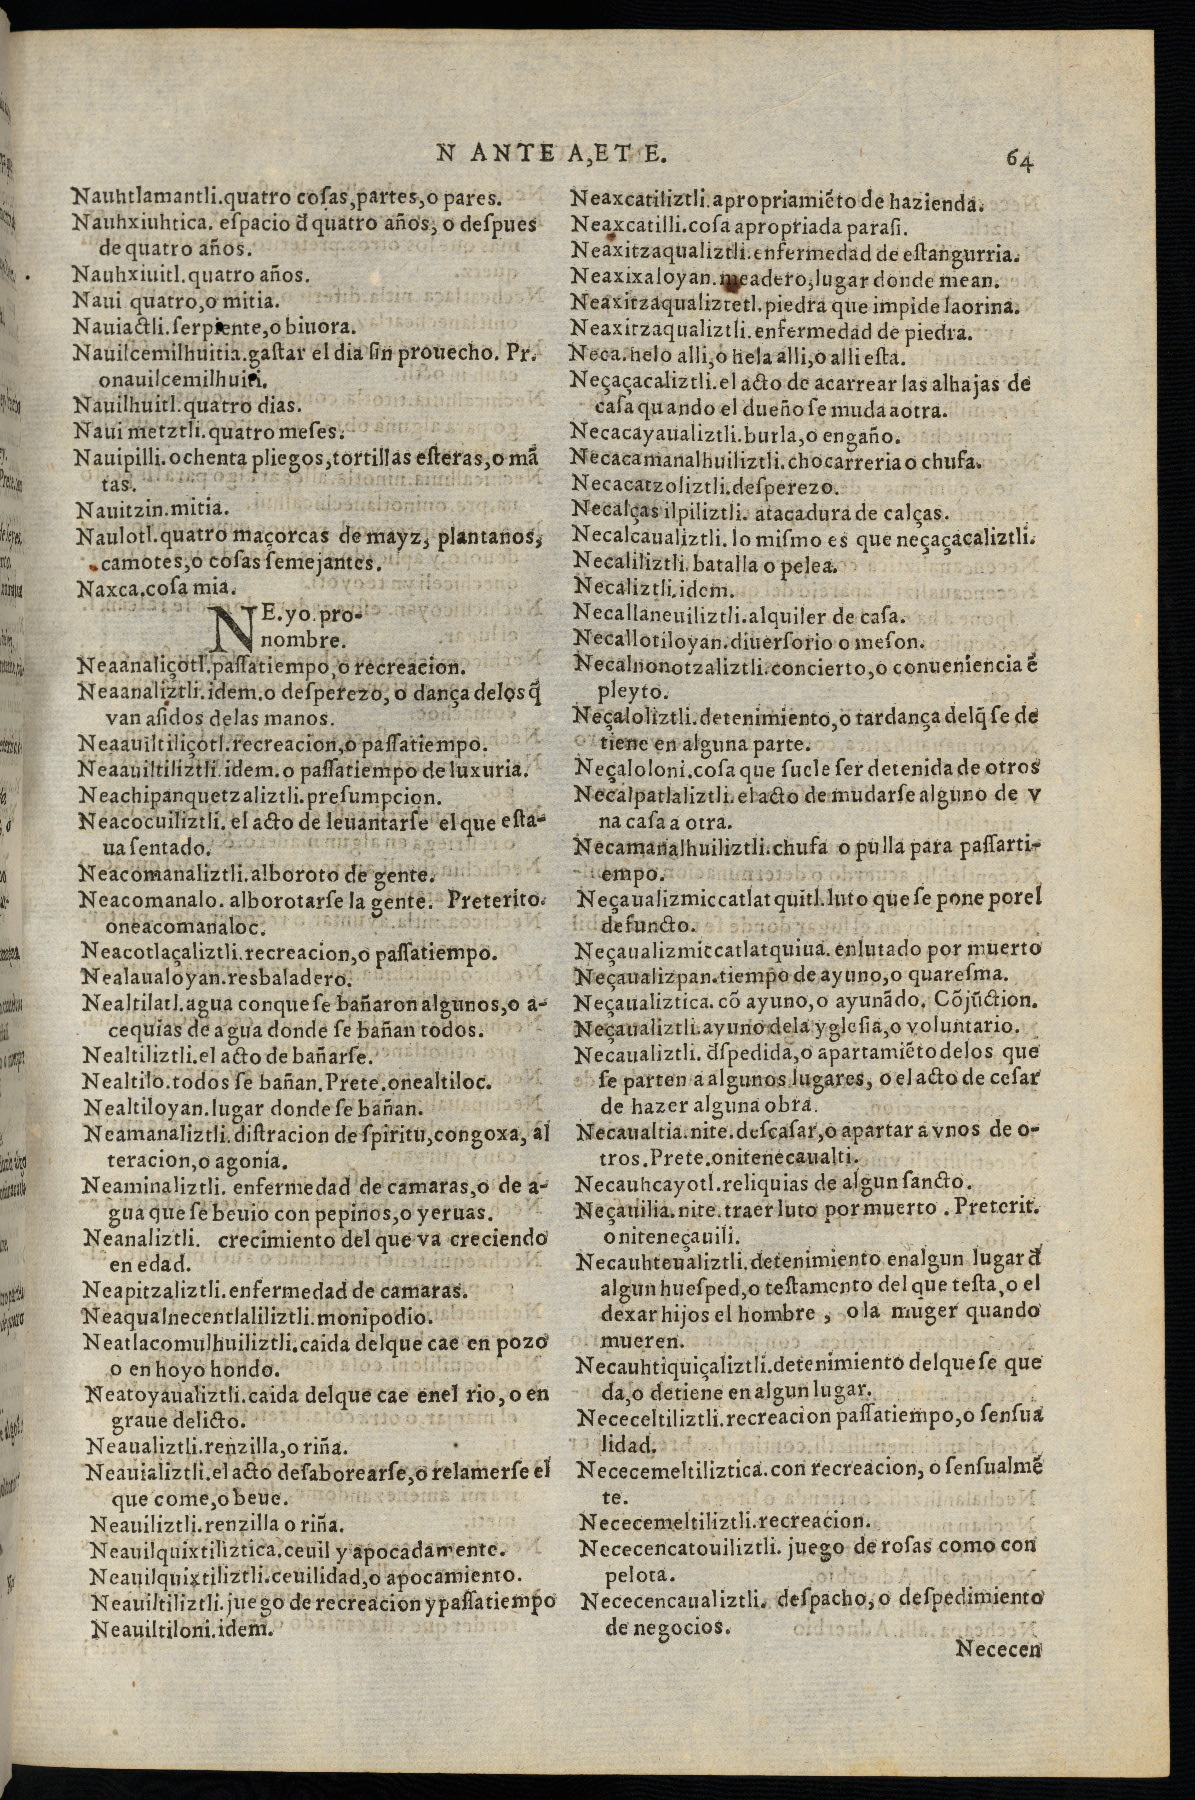 N ANTE A, ET E.
64
Nauhtlamantli.quatro cosas,partes,o pares.
Nauhxiuhtica. espacio đ quatro años, o despues
de quatro años.
Nauhxiuitl.quatro años.
Naui quatro,o mitia.
Nauiactli.serpiente,o biuora.
Nauilcemilhuitia.gastar el dia sin prouecho. Pr.
onauilcemilhuiti.
Nauilhuitl.quatro dias.
Naui metztli.quatro meses.
Nauipilli.ochenta pliegos,tortillas esteras,o mã
tas.
Nauitzin.mitia.
Naulotl.quatro maçorcas de mayz, plantanos,
camotes,o cosas semejantes.
Naxca.cosa mia.
NE.yo.pro-
nombre.
Neaanaliçotl.passatiempo,o recreacion.
Neaanaliztli.idem.o desperezo, o dança delos q̃
van asidos delas manos.
Neaauiltiliçotl.recreacion,o passatiempo.
Neaauiltiliztli.idem.o passatiempo de luxuria.
Neachipanquetzaliztli.presumpcion.
Neacocuiliztli. el acto de leuantarse el que esta-
ua sentado.
Neacomanaliztli.alboroto de gente.
Neacomanalo. alborotarse la gente. Preterito.
oneacomanaloc.
Neacotlaçaliztli.recreacion,o passatiempo.
Nealaualoyan.resbaladero.
Nealtilatl.agua conque se bañaron algunos,o a-
cequias de agua donde se bañan todos.
Nealtiliztli.el acto de bañarse.
Nealtilo.todos se bañan.Prete.onealtiloc.
Nealtiloyan.lugar donde se bañan.
Neamanaliztli.distracion de spiritu,congoxa, al
teracion,o agonia.
Neaminaliztli. enfermedad de camaras,o de a-
gua que se beuio con pepinos,o yeruas.
Neanaliztli. crecimiento del que va creciendo
en edad.
Neapitzaliztli.enfermedad de camaras.
Neaqualnecentlaliliztli.monipodio.
Neatlacomulhuiliztli.caida delque cae en pozo
o en hoyo hondo.
Neatoyaualiztli.caida delque cae enel rio, o en
graue delicto.
Neaualiztli.renzilla,o riña.
Neauializtli.el acto desaborearse,o relamerse el
que come,o beue.
Neauiliztli.renzilla o riña.
Neauilquixtiliztica.ceuil y apocadamente.
Neauilquixtiliztli.ceuilidad,o apocamiento.
Neauiltiliztli.juego de recreacion y passatiempo
Neauiltiloni.idem.
Neaxcatiliztli.apropriamiẽto de hazienda.
Neaxcatilli.cosa apropriada parasi.
Neaxitzaqualiztli.enfermedad de estangurria.
Neaxixaloyan.meadero,lugar donde mean.
Neaxitzaqualiztetl.piedra que impide laorina.
Neaxitzaqualiztli.enfermedad de piedra.
Neca.helo alli,o hela alli,o alli esta.
Neçaçacaliztli.el acto de acarrear las alhajas de
casa quando el dueño se muda aotra.
Necacayaualiztli.burla,o engaño.
Necacamanalhuiliztli.chocarreria o chufa.
Necacatzoliztli.desperezo.
Necalças ilpiliztli. atacadura de calças.
Necalcaualiztli.lo mismo es que neçaçacaliztli.
Necaliliztli.batalla o pelea.
Necaliztli.idem.
Necallaneuiliztli.alquiler de casa.
Necallotiloyan.diuersorio o meson.
Necalnonotzaliztli.concierto,o conueniencia ẽ
pleyto.
Neçaloliztli.detenimiento,o tardança delq̃ se de
tiene en alguna parte.
Neçaloloni.cosa que suele ser detenida de otros
Necalpatlaliztli.el acto de mudarse alguno de v
na casa a otra.
Necamanalhuiliztli.chufa o pulla para passarti-
empo.
Neçaualizmiccatlatquitl.luto que se pone porel
defuncto.
Neçaualizmiccatlatquiua. enlutado por muerto
Neçaualizpan.tiempo de ayuno,o quaresma.
Neçaualiztica. cõ ayuno,o ayunãdo. Cõjũction.
Neçaualiztli.ayuno dela yglesia,o voluntario.
Necaualiztli. đspedida,o apartamiẽto delos que
se parten a algunos lugares, o el acto de cesar
de hazer alguna obra.
Necaualtia.nite.descasar,o apartar a vnos de o-
tros.Prete.onitenecaualti.
Necauhcayotl.reliquias de algun sancto.
Neçauilia.nite.traer luto por muerto . Preterit.
oniteneçauili.
Necauhteualiztli.detenimiento enalgun lugar đ
algun huesped,o testamento del que testa,o el
dexar hijos el hombre , o la muger quando
mueren.
Necauhtiquiçaliztli.detenimiento delquese que
da,o detiene en algun lugar.
Nececeltiliztli.recreacion passatiempo,o sensua
lidad.
Nececemeltiliztica.con recreacion, o sensualmẽ
te.
Nececemeltiliztli.recreacion.
Nececencatouiliztli. juego de rosas como con
pelota.
Nececencaualiztli. despacho,o despedimiento
de negocios.
Nececen